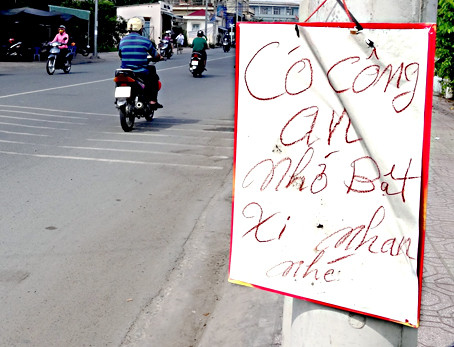 Có công
an
nhớ Bật
Xi nhan
nhé